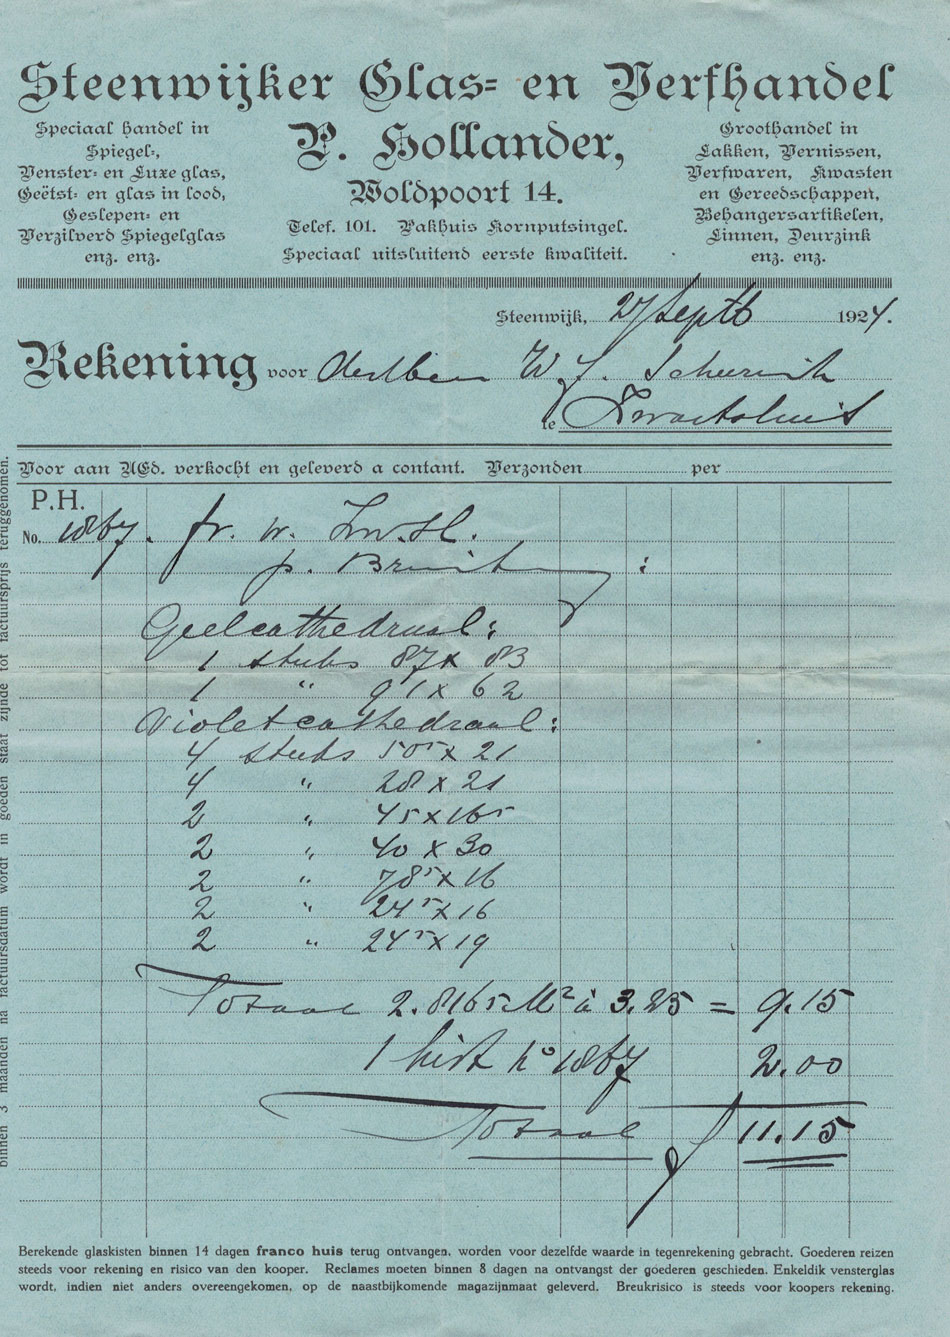 Steenwijker Glas= en Verfhandel
Speciaal handel in
Spiegel=,
Venster= en Luxe glas,
Geëtst= en glas in lood,
Geslepen= en
Verzilverd Spiegelglas
enz. enz.
P. Hollander,
Woldpoort 14.
Telef. 101. Pakhuis Kornputsingel.
Speciaal uitsluitend eerste kwaliteit.
Groothandel in
Lakken, Vernissen,
Verfwaren, Kwasten
en Gereedschappen,
Behangersartikelen,
Linnen, Deurzink
enz. enz.
Steenwijk, 27 Septb 1924.
Rekening voor W. J. Scheurink
te Zwartsluis
Voor aan UEd. verkocht en geleverd a contant. Verzonden per
P.H.
No. 1867. fr. w. Zw.Sl.
p.
Geelcathedraal:
1 stuks 87 x 83
1 " 91 x 62
Violetcathedraal:
4 stuks 50⁵ x 21
4 " 28 x 21
2 " 45 x 16⁵
2 " 40 x 30
2 " 78⁵ x 16
2 " 24⁵ x 16
2 " 24⁵ x 19
Totaal 2.8165 M² à 3.25 = 9.15
1 kist no 1867 2.00
Totaal f 11.15
Berekende glaskisten binnen 14 dagen franco huis terug ontvangen, worden voor dezelfde waarde in tegenrekening gebracht. Goederen reizen
steeds voor rekening en risico van den kooper. Reclames moeten binnen 8 dagen na ontvangst der goederen geschieden. Enkeldik vensterglas
wordt, indien niet anders overeengekomen, op de naastbijkomende magazijnmaat geleverd. Breukrisico is steeds voor koopers rekening.
binnen 3 maanden na factuursdatum wordt in goeden staat zijnde tot factuursprijs teruggenomen.